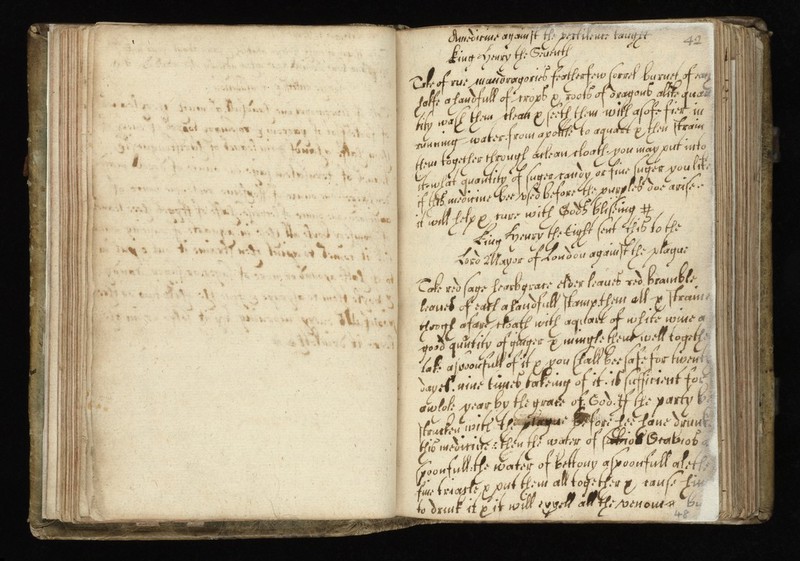 A medicine against the pestilence taught
42
King Henry the Seventh
Take of rue, mandragories featherfew sorrel burnet of each
halfe a handfull of crops & roots of dragons alike quan
tity wash them clean & seeth them with a softe fier in
running water from a pottle to a quart & then strain
them together through a clean cloath you may put into
it what quantity of suger candy or fine suger you like
if this medicine bee used before the purples doe arise
it will help & cure with Gods blissing #
King Henry the Eight sent this to the
Lord Mayor of London against the plague
Take red sage hearbgrace elder leaves red bramble
leaves of each a handfull stamp them all & straine
through a fare cloath with a quart of white wine a
good quntity of ginger & mingle them well togethe
take a spoonfull of it & you shall bee safe for twent
dayes. nine times takeing of it is sufficient for
a whole year by the grace of God. If the party be
strucken with the plague before hee have drunk
this medicine: then the water of Scabios a
spoonfull the water of bettony a spoonfull
fine triacle & put them all together & cause him
to drink it & it will expell all the venom
48